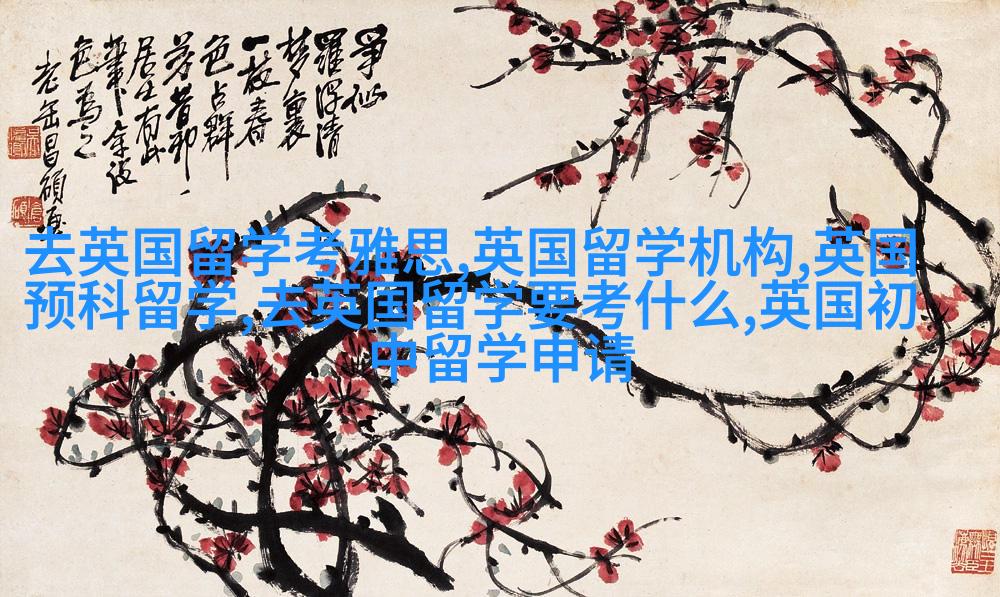 爭似
羅浮清
梦裏
一枝春
色占群
芳昔邪
居士有此
色為之
老缶昌碩
去英国留学考雅思,英国留学机构,英国
预科留学,去英国留学要考什么,英国初
中留学申请